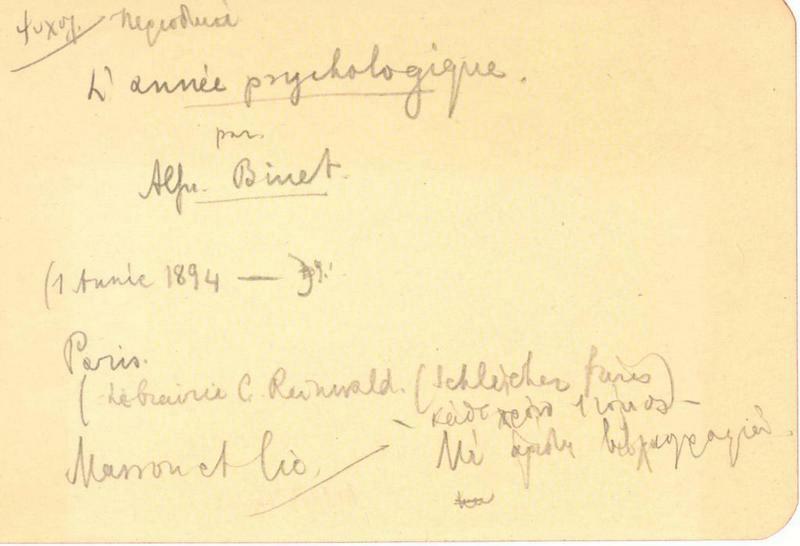 Ψυχολ. Περιοδικά
L'année psychologique.
par
Alfr. Binet.
(1 Année 1894 —
Paris.
(Librairie C. Reinwald. (Schleicher frères)
κάθε χρόνο 1 τόμος –
Masson et Cie. Μέ βιβλιογραφία